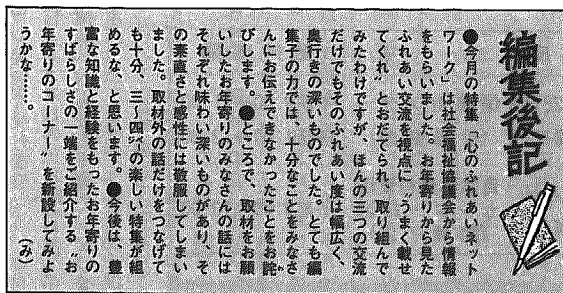 編集後記
●今月の特集「心のふれあいネット
ワーク」は社会福祉協議会から情報
をもらいました。お年寄りから見た
ふれあい交流を視点に〝うまく載せ
てくれ〟とおだてられ、取り組んで
みたわけですが、ほんの三つの交流
だけでもそのふれあい度は幅広く、
奥行きの深いものでした。とても編
集子の力では、十分なことをみなさ
んにお伝えできなかったことをお詫
びします。●ところで、取材をお願
いしたお年寄りのみなさんの話には
それぞれ味わい深いものがあり、そ
の素直さと感性には敬服してしまい
ました。取材外の話だけをつなげて
も十分、三〜四㌻の楽しい特集が組
めるな、と思います。●今後は、豊
富な知識と経験をもったお年寄りの
すばらしさの一端をご紹介する〝お
年寄りのコーナー〟を新設してみよ
うかな……。
(み)